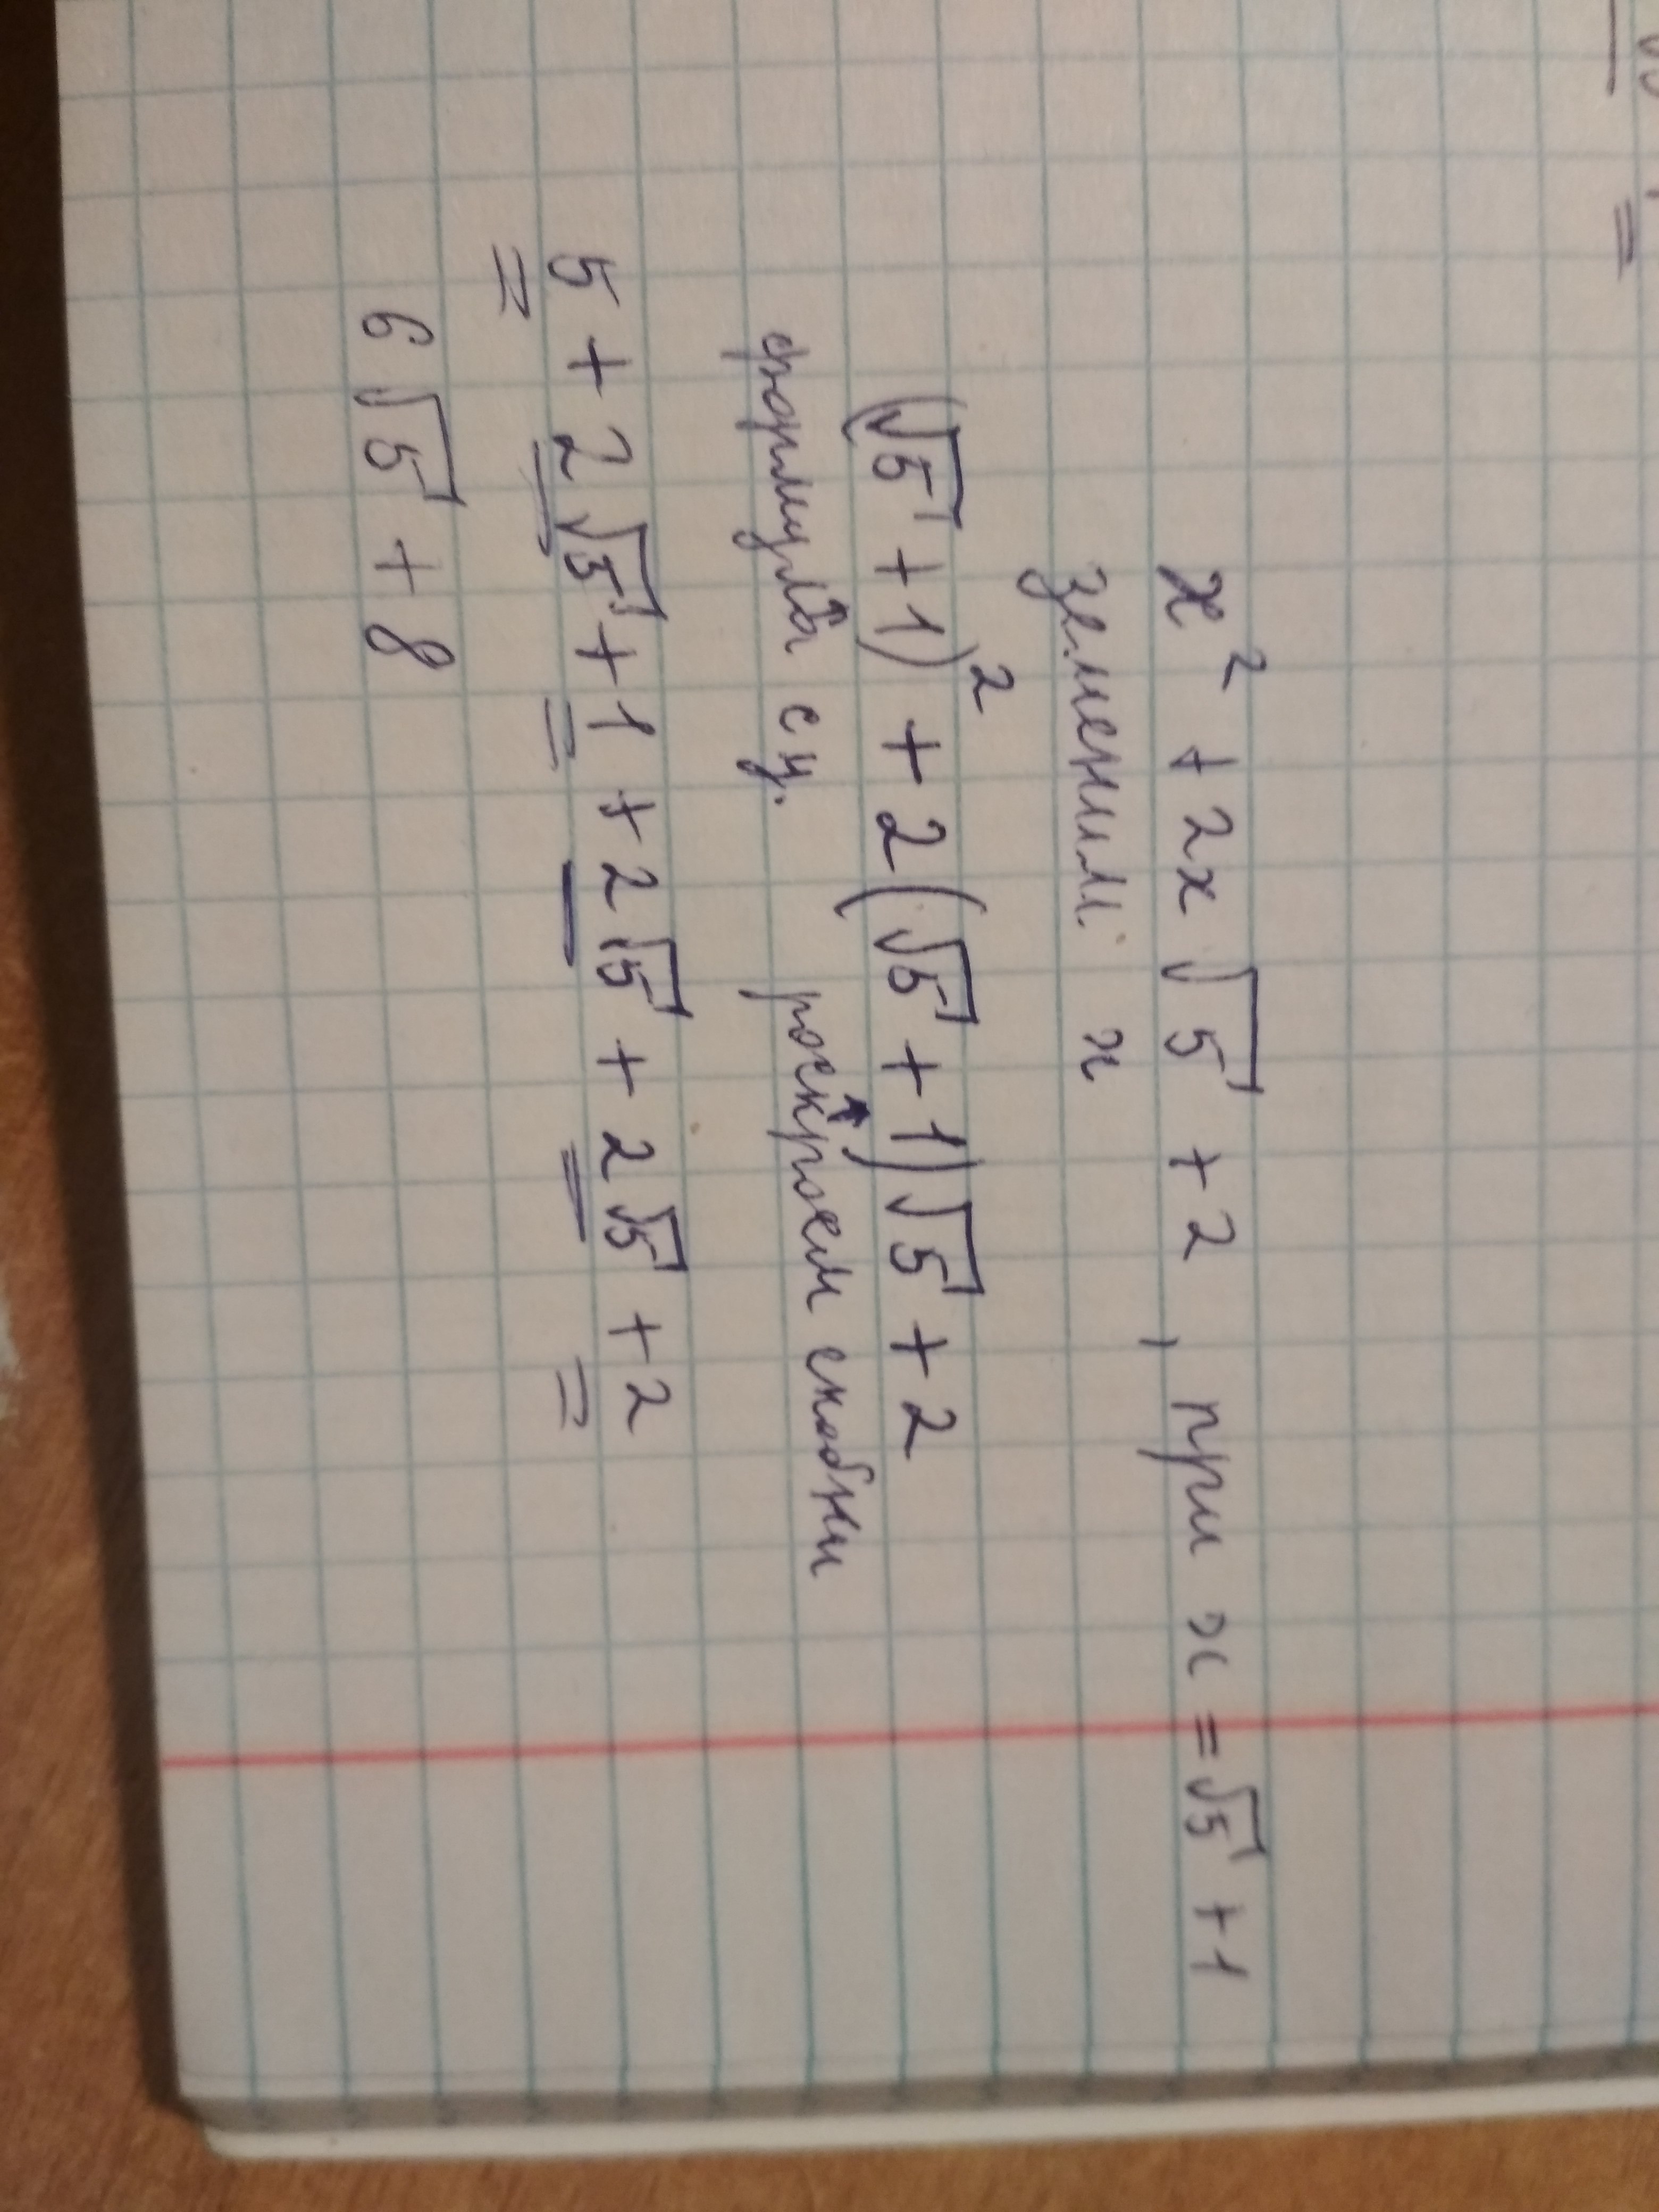 x² + 2x√5 + 2, при x = √5 + 1
заменим x
(√5 + 1)² + 2(√5 + 1)√5 + 2
формула сч. роскроем скобки
5 + 2√5 + 1 + 2√5 + 2√5 + 2
6√5 + 8